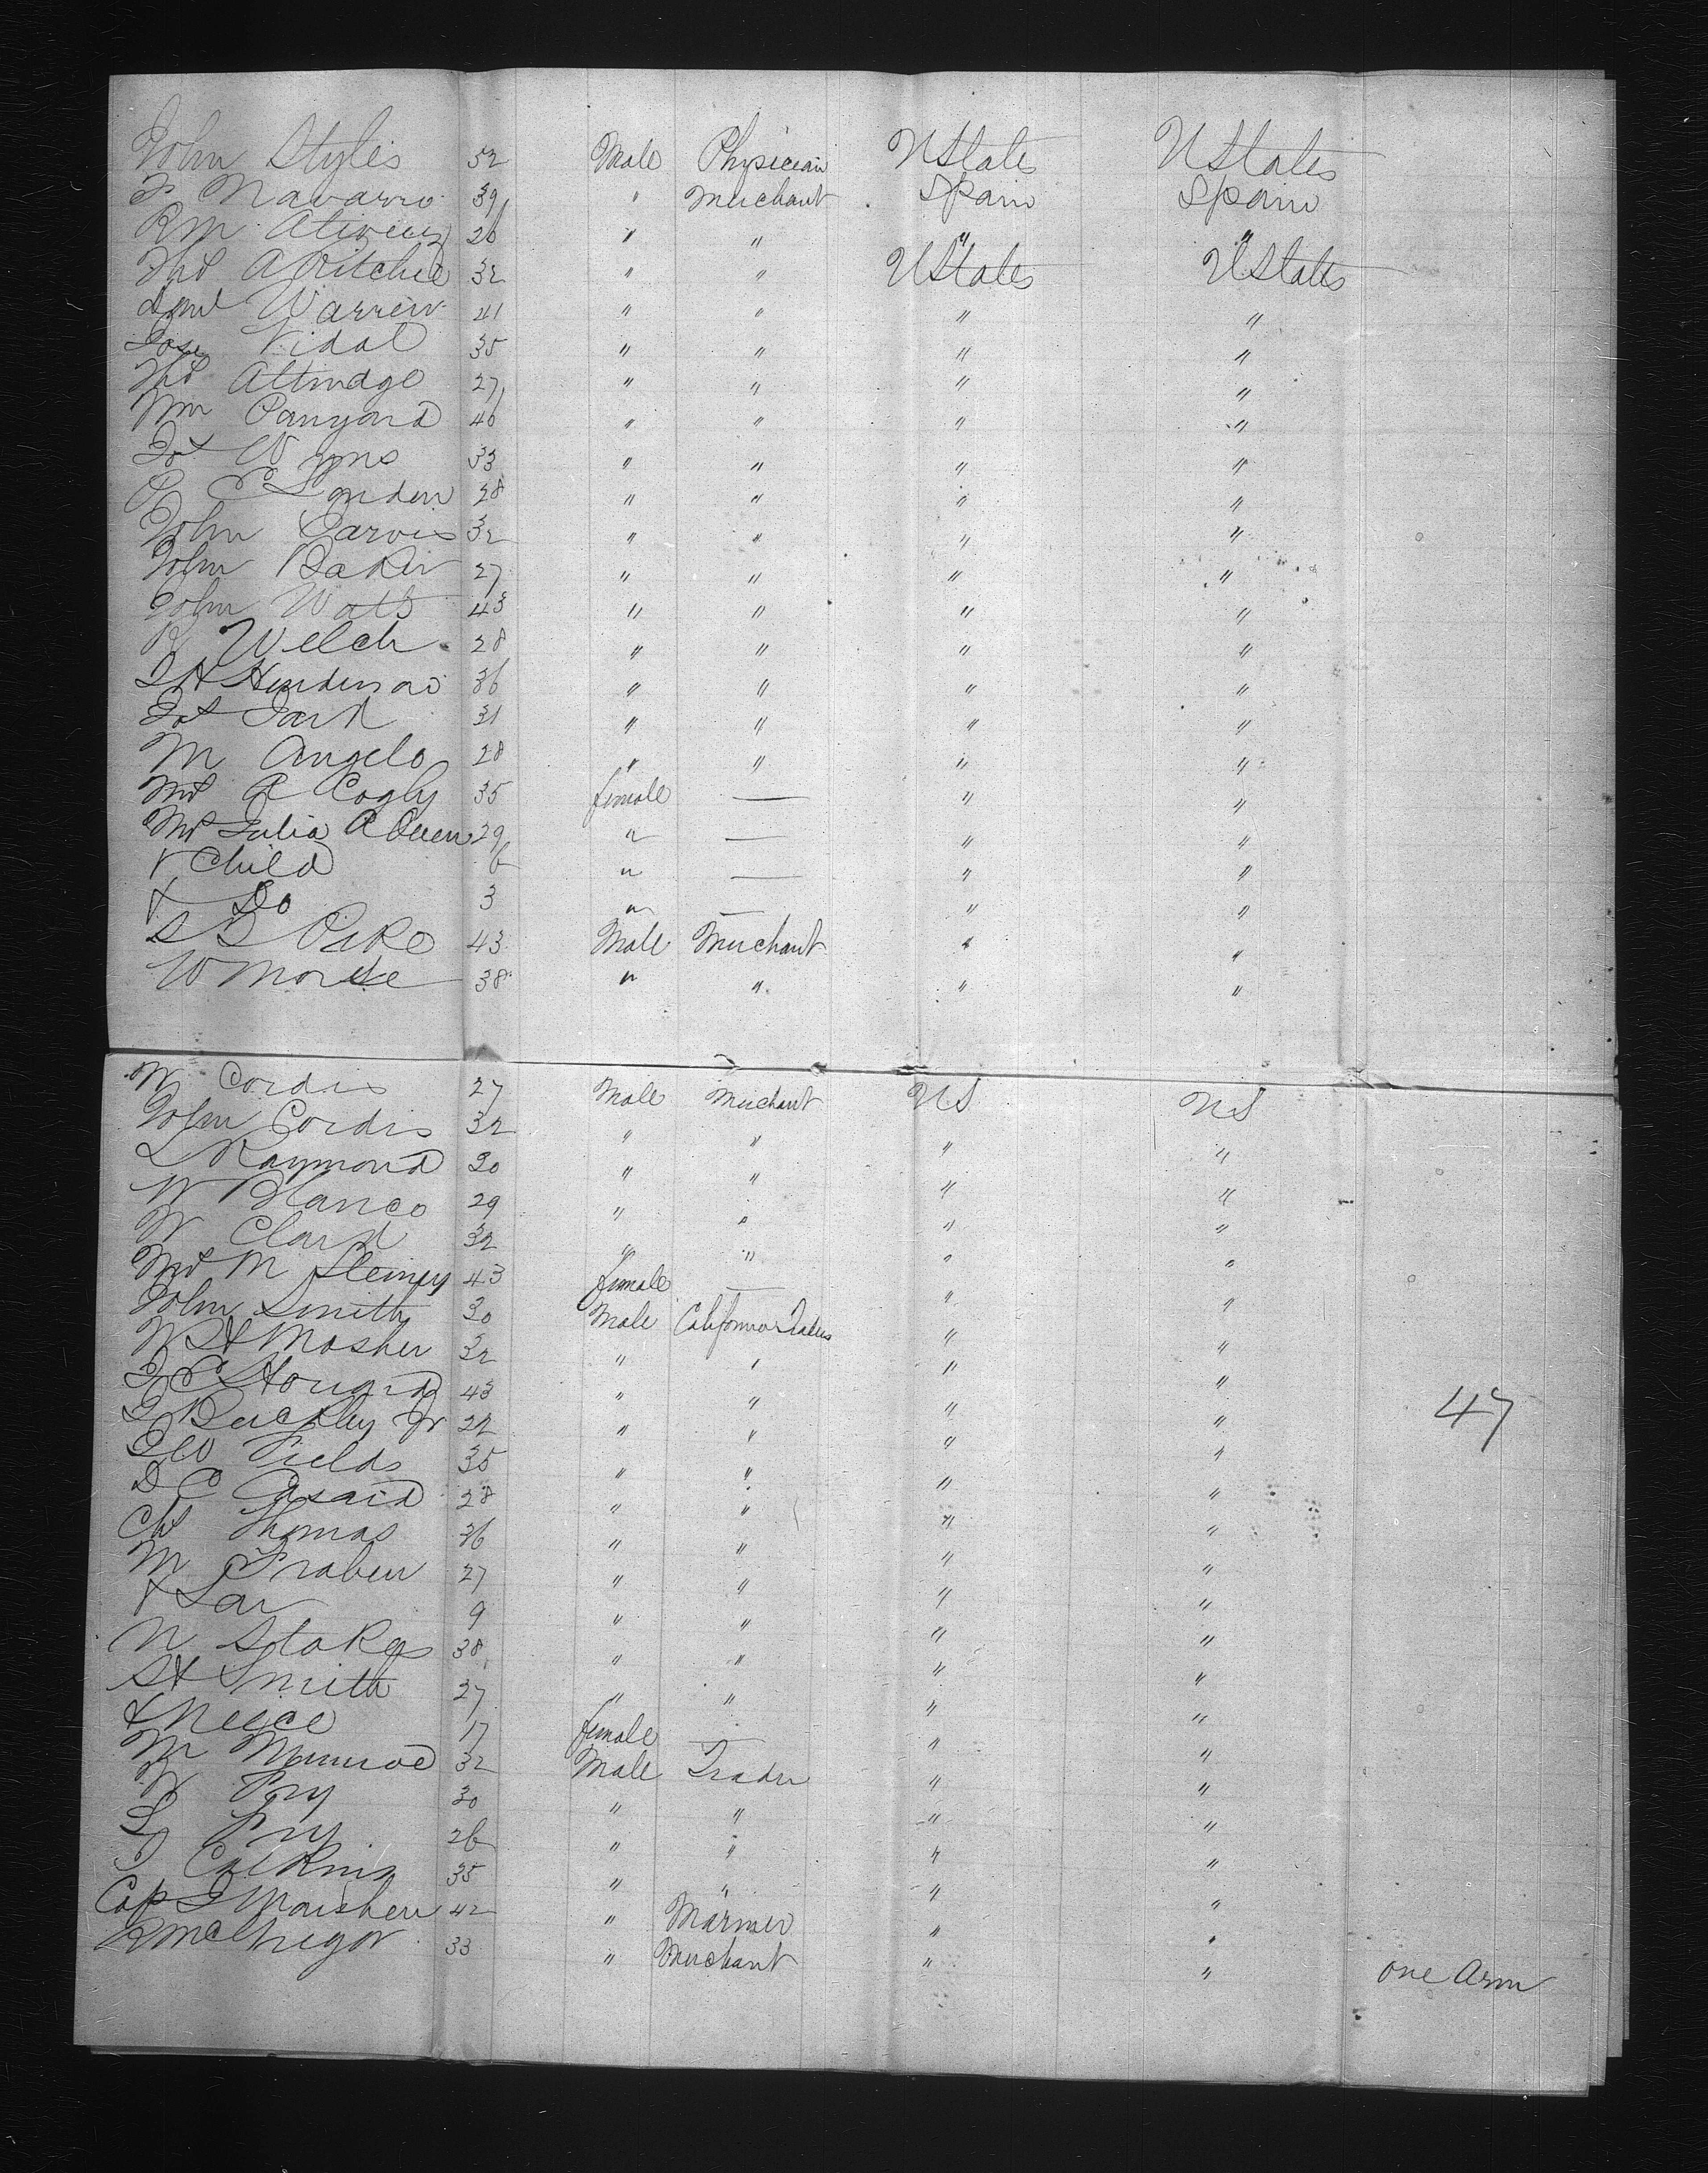 John Styles 52 Male Physician UStates UStates
F Navarro 39 " Merchant Spain Spain
Rm 26 " " " "
Ths A Ritchie 32 " " UStates UStates
Saml Warren 41 " " " "
Jose Vidal 35 " " " "
Ths Attridge 27 " " " "
Wm Panyard 40 " " " "
Jos Wyms 33 " " " "
P C Linden 28 " " " "
John Jarvis 32 " " " "
John Baker 27 " " " "
John Watts 43 " " " "
R Welch 28 " " " "
J H Henderson 36 " " " "
Jas Park 31 " " " "
M Angelo 28 " " " "
Mrs A Cogly 35 female — " "
Mrs Julia A Queen 29 " — " "
& Child 6 " — " "
& Do 3 " — " "
S S Pike 43 Male Merchant " "
W Morse 38 " " " "
W Cordis 27 Male Merchant US US
John Cordis 32 " " " "
L Raymond 30 " " " "
W Blanco 29 " " " "
W Clark 32 " " " "
Mrs M 43 female — " "
John Smith 30 Male California Trader " "
W H Mosher 32 " " " "
J C Howard 43 " " " "
J Buckley Jr 22 " " " "
J W Fields 35 " " " "
D C Casaid 28 " " " "
Chs Thomas 36 " " " "
M Fraben 27 " " " "
& Son 9 " " " "
N Stokes 38 " " " "
H Smith 27 " " " "
& Neece 17 female — " "
M Munroe 32 Male Trader " "
W Fry 30 " " " "
S Fry 26 " " " "
J Calkins 35 " " " "
Cap J 42 " Mariner " "
R McGregor 33 " Merchant " " one Arm
47